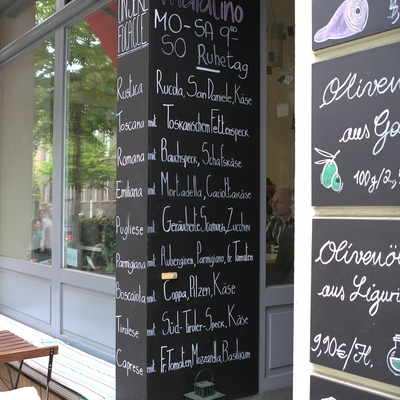 UNSERE
FOCACCE
MO-SA 9-
SO Ruhetag
Rustica Rucola, San Daniele, Käse
Toscana mit Toskanischem Fettenspeck
Romana mit Bauchspeck, Schafskäse
Emiliana mit Mortadella, Caciottakäse
Pugliese mit Geräucherte Scamorza, Zucchini
Parmigiana mit Auberginen, Parmigiano, fr. Tomaten
Boscaiola mit Coppa, Pilzen, Käse
Tirolese mit Süd-Tiroler-Speck, Käse
Caprese mit Fr. Tomaten, Mozzarella, Basilikum
Oliven
aus
100g/2,
Olivenöl
aus Liguri
9,90€/Fl.